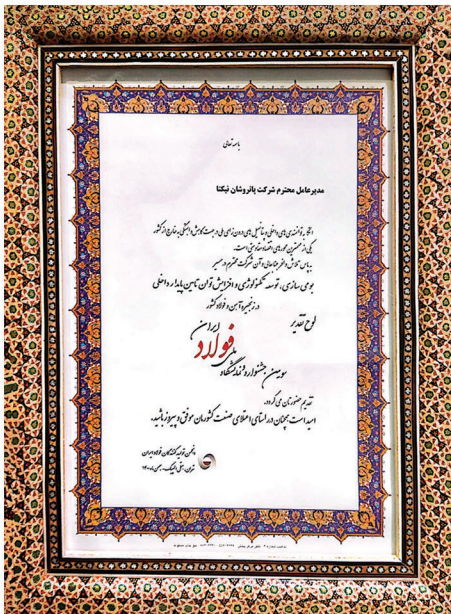 باسمه تعالی
مدیرعامل محترم شرکت پاتروشان نیکتا
اتکا به توانمندی های داخلی و پتانسیل های درون زای ملی در جهت کاهش وابستگی به خارج از کشور
یکی از مهمترین محورهای اقتصاد مقاومتی است.
به پاس تلاش وافر جنابعالی و آن شرکت محترم در مسیر
بومی سازی، توسعه تکنولوژی و افزایش توان تامین پایدار داخلی
در زنجیره آهن و فولاد کشور
لوح تقدیر
سومین جشنواره و نمایشگاه ملی فولاد ایران
تقدیم حضورتان می گردد.
امید است همچنان در راستای اعتلای صنعت کشورمان موفق و پیروز باشید.
انجمن تولیدکنندگان فولاد ایران
تهران، هتل المپیک، بهمن ۱۴۰۰